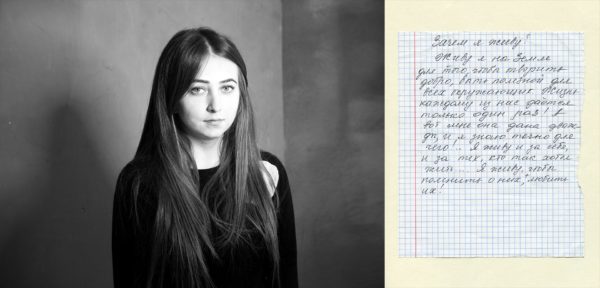 Зачем я живу?
Живу я на Земле
для того, чтобы творить
добро, быть полезной для
всех окружающих. Жизнь
каждому из нас дается
только один раз! А
вот мне она дана дваж-
ды, и я знаю точно для
чего!.. Я живу и за себя,
и за тех, кто так хотел
жить... Я живу, чтобы
помнить о них, любить
их!